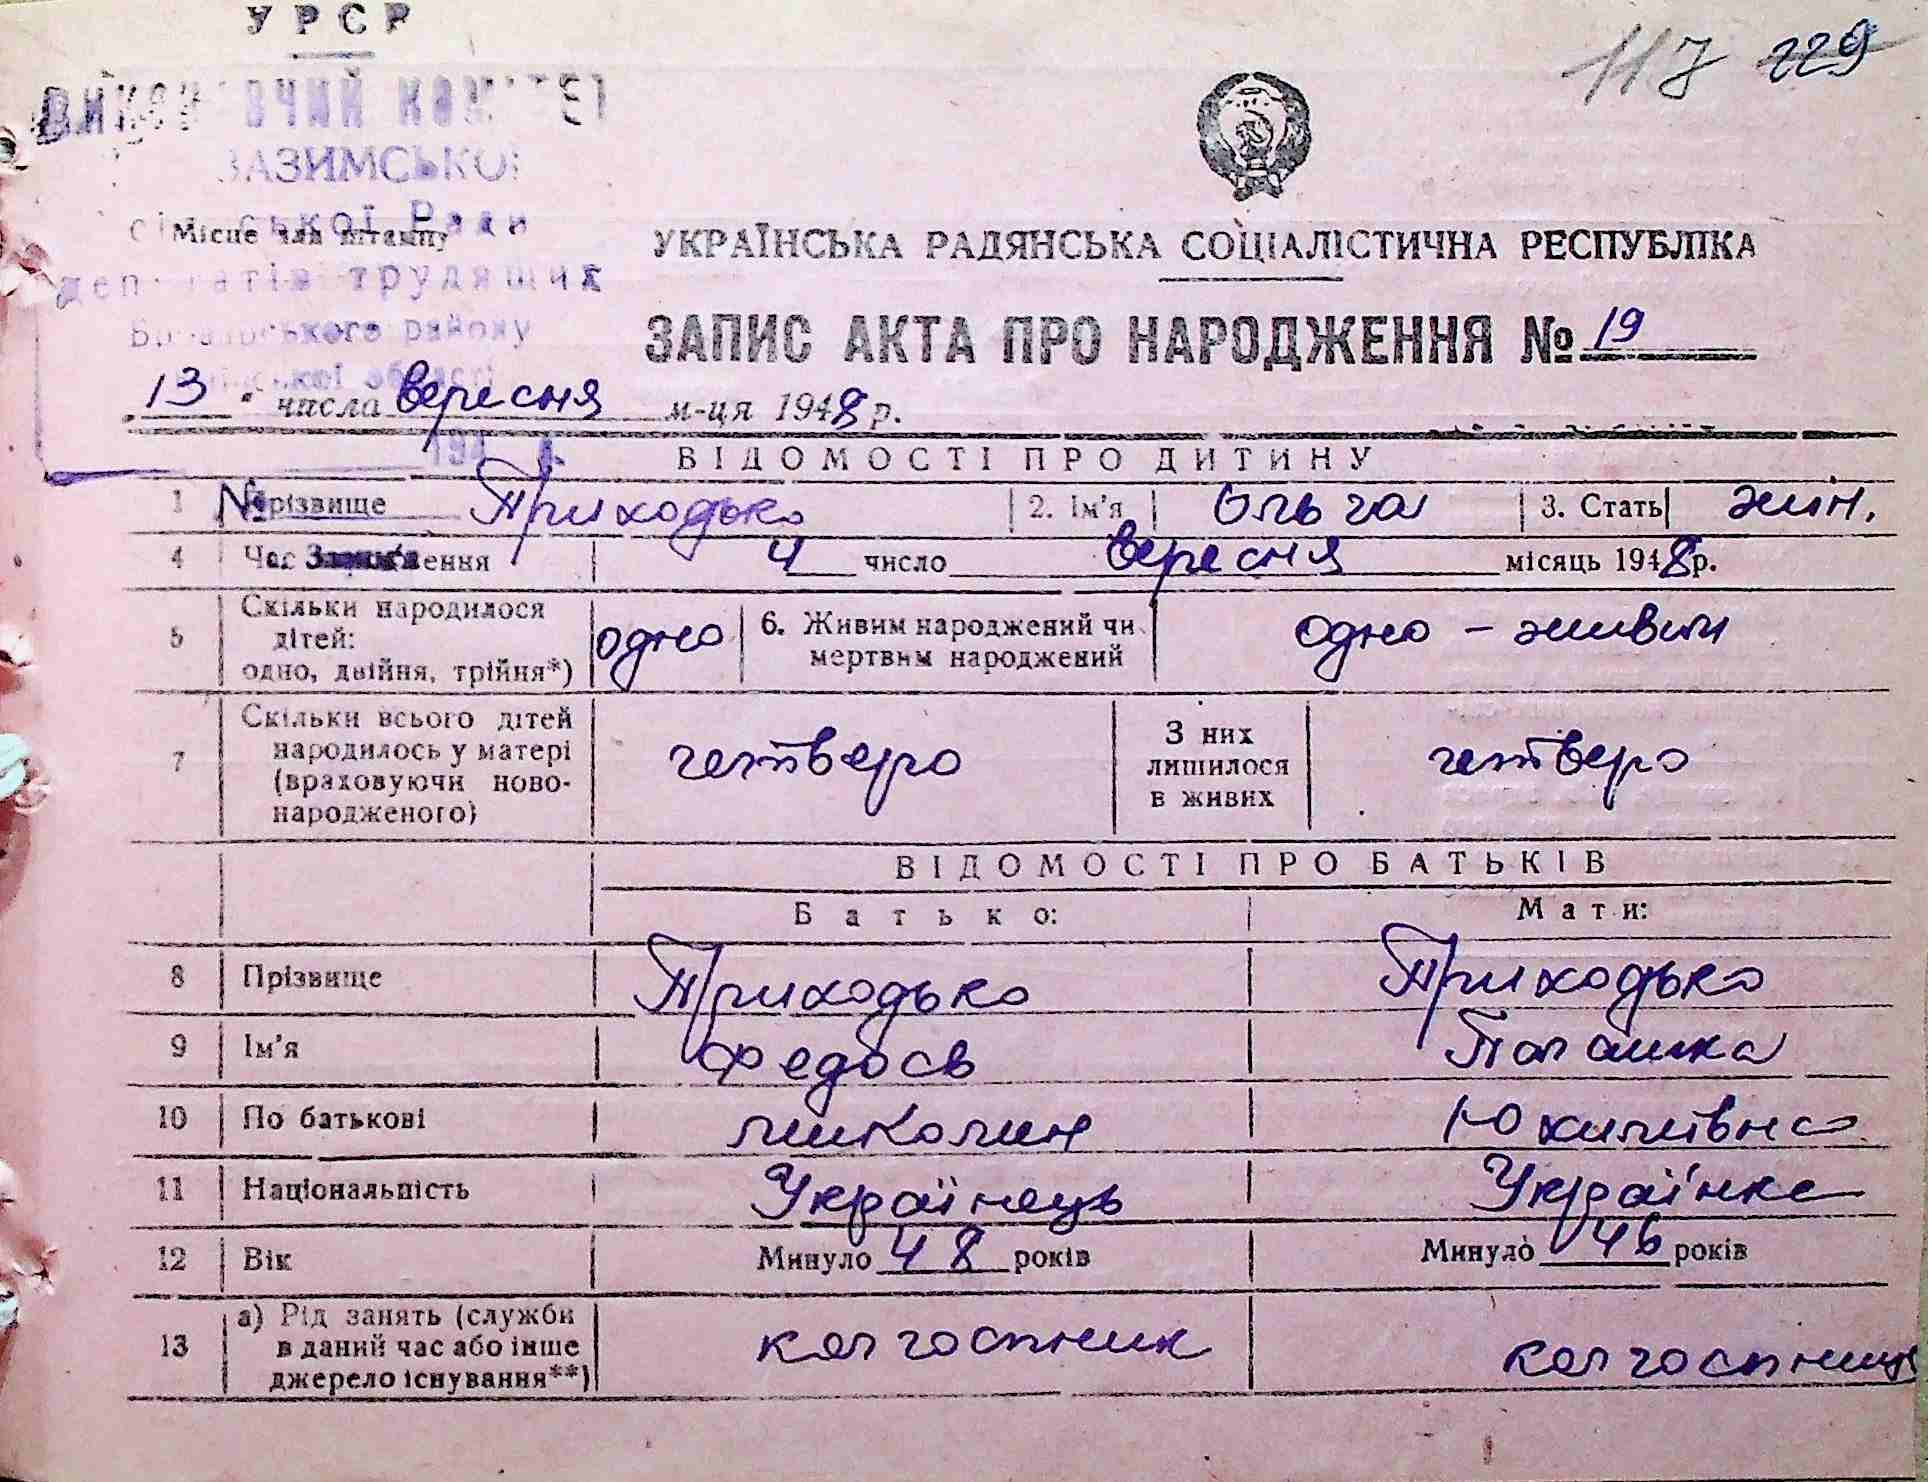 УРСР
117 229
ВИКОНАВЧИЙ КОМІТЕТ
ЗАЗИМСЬКОЇ
сільської Ради
Місце для штампу
депутатів трудящих
УКРАЇНСЬКА РАДЯНСЬКА СОЦІАЛІСТИЧНА РЕСПУБЛІКА
Броварського району
ЗАПИС АКТА ПРО НАРОДЖЕННЯ № 19
області
13 " числа вересня м-ця 1948 р.
194
ВІДОМОСТІ ПРО ДИТИНУ
1 № Прізвище Приходько 2. Ім'я Ольга 3. Стать жін.
4 Час народження 4 число вересня місяць 1948 р.
5 Скільки народилося дітей: одно, двійня, трійня*) одно 6. Живим народжений чи мертвим народжений одно - живим
7 Скільки всього дітей народилось у матері (враховуючи ново-народженого) четверо З них лишилося в живих четверо
ВІДОМОСТІ ПРО БАТЬКІВ
Батько: Мати:
8 Прізвище Приходько Приходько
9 Ім'я Федось Палашка
10 По батькові миколин Юхимівна
11 Національність Українець Українка
12 Вік Минуло 48 років Минуло 46 років
13 а) Рід занять (служби в даний час або інше джерело існування**) колгоспник колгоспниця